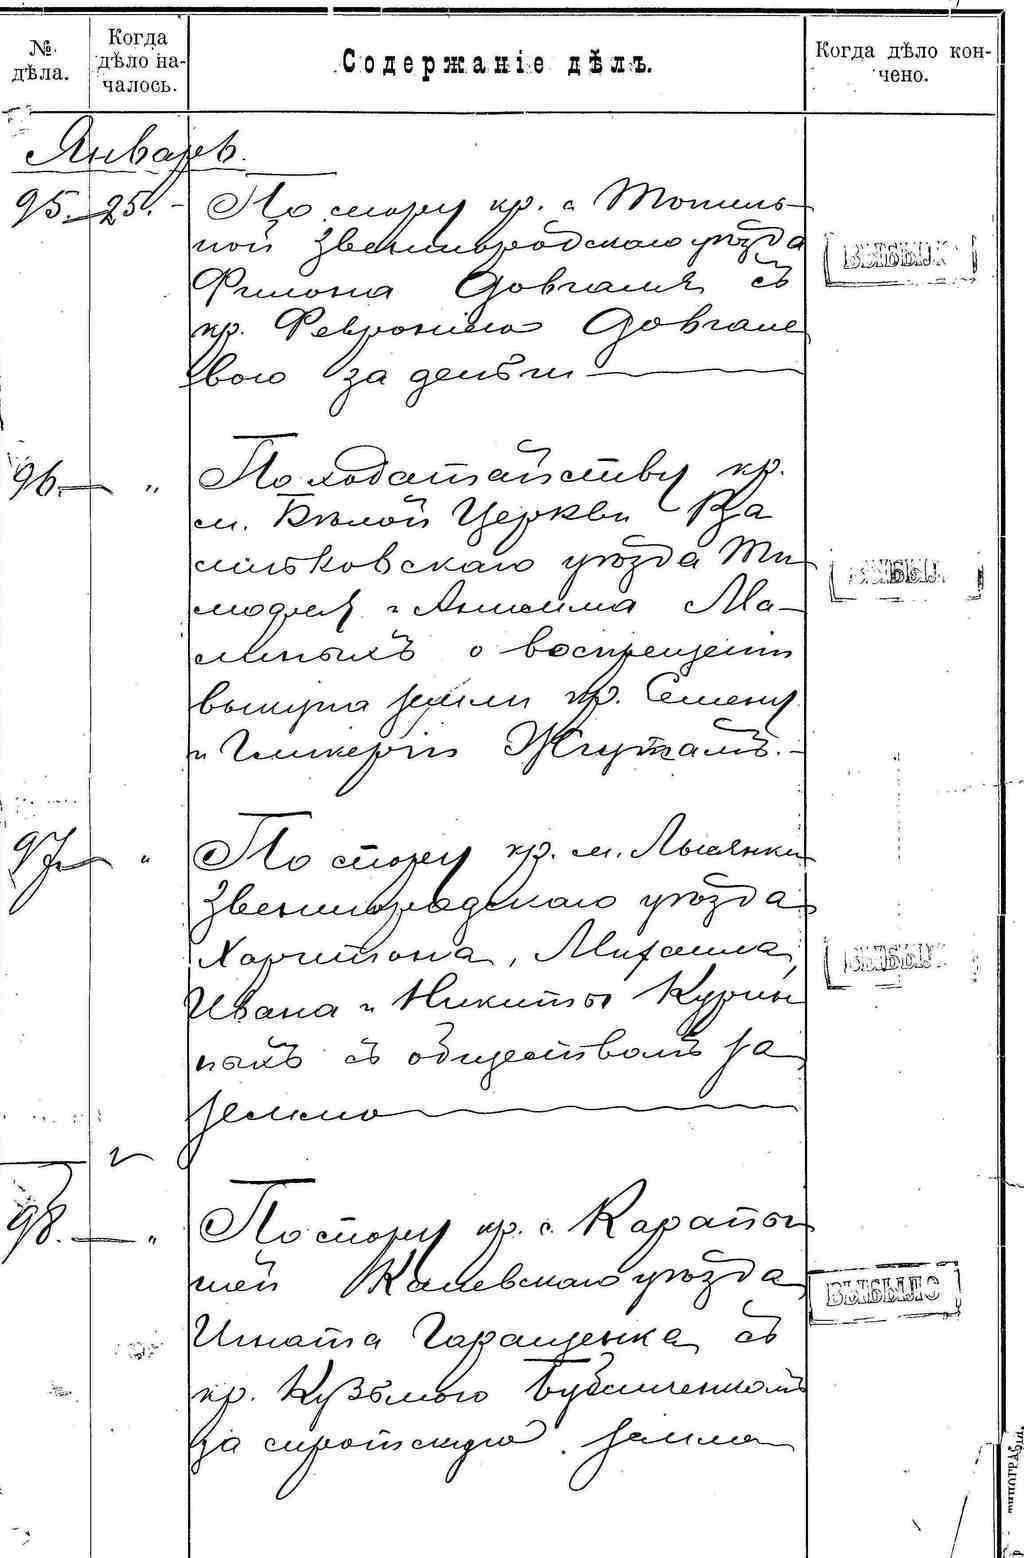 № дѣла.
Когда дѣло началось.
Содержаніе дѣлъ.
Когда дѣло кончено.
Январь.
95. 25. По спору кр. с. Топиль-
ной Звенигородскаго уѣзда
Филона Довгаля съ
кр. Февроніею Довгале
вою за деньги
ВЫБЫЛО
96. — „ По ходатайству кр.
м. Бѣлой Церкви Ва
сильковскаго уѣзда Ти
мофея и Анисима Ма-
линыхъ о воспрещеніи
выкупа земли кр. Семену
и Гликеріи Жгутамъ.-
ВЫБЫЛО
97 — „ По спору кр. м. Лысянки
Звенигородскаго уѣзда
Харитона, Михаила,
Ивана и Никиты Курин
ныхъ съ обществомъ за
землю
ВЫБЫЛО
98. — „ По спору кр. с. Карапы
шей Каневскаго уѣзда
Игната Гаращенка съ
кр. Кузьмою
за сиротскую землю
ВЫБЫЛО